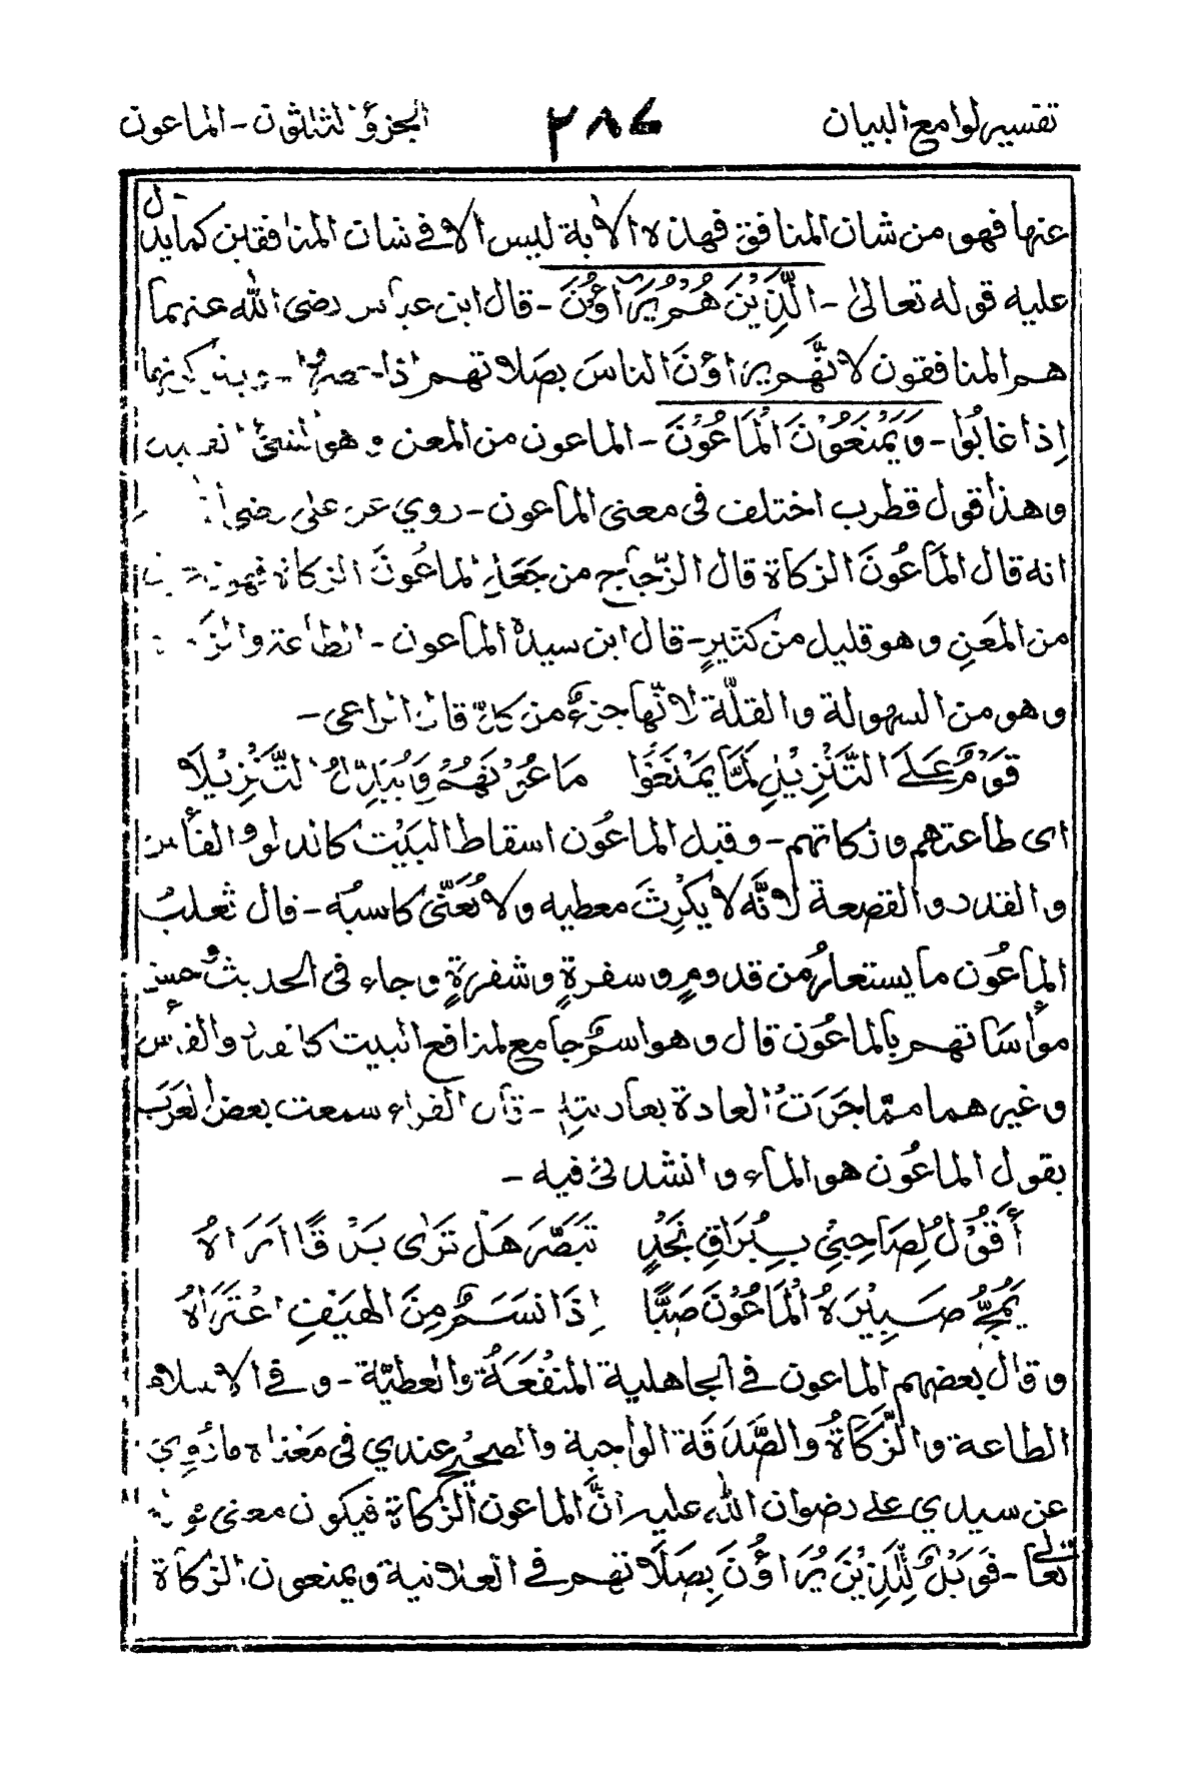 تفسير لوامع البيان
٢٨٤
الجزؤ الثلثون - الماعون
عنها فهو من شان المنافق فهذه الآية ليس الا في شان المنافقين كما يدل
عليه قوله تعالى - الَّذِيْنَ هُمْ يُرَاؤُنَ - قال ابن عباس رضى الله عنهما
هم المنافقون لانَّهم يراؤنَ الناسَ بصَلاتهم اذا
إذا غابُوا - وَيَمْنَعُوْنَ الْمَاعُوْنَ - الماعون من المعن وهو الشئ
وهذا قول قطرب اختلف فى معنى الماعون - روي عن على رضى
انه قال المَاعُونَ الزكاة قال الزّجاج من جَعَلَ الماعُونَ الزكاة فهو
من المَعنِ وهو قليل من كثيرٍ - قال ابن سيدة الماعون - الطاعة والز
وهو من السهولة والقلّة لانّها جزءٌ من كلّ قال الراعى -
قَوْمٌ عَلَى التَّنْزِيْلِ لَمَّا يَمْنَعُوْا مَاعُوْنَهُمْ وَيُبَدِّلُوا التَّنْزِيْلَا
اى طاعتهم وزكاتهم - وقيل الماعُون اسقاط البَيْت كالدلو والفأس
والقدر والقصعة لانَّه لا يكْرِثَ معطيه ولا يُعَنّى كاسبُه - قال ثعلبُ
الماعُون ما يستعارُ من قدومٍ وسفرةٍ وشفرةٍ وجاء فى الحديث حسن
موأسَاتهم بالماعُون قال وهو اسمٌ جامع لمنافع البيت كالقدر والفأس
وغيرهما ممّا جَرَتُ العادة بعاريته - قال الفراء سمعت بعض العَرَب
يقول الماعُون هو الماء وانشدنى فيه -
أَقُوْلُ لِصَاحِبِيْ بِبُرَاقِ نَجْدٍ تَبَصَّرَ هَلْ تَرٰى بَرْقًا اَرَاهُ
يَمُجُّ صَبِيْرَهُ الْمَاعُوْنَ صَبًّا إِذَا نَسَمٌ مِنَ الهَيْفِ اعْتَرَاهُ
وقال بعضهم الماعون في الجاهلية المَنْفَعَةُ والعطيّة - وفي الاسلام
الطاعة والزَّكَاةُ والصَّدَقَة الواجبة والصحيْح عندي فى مَعْناه ما رُوِيَ
عن سيدي على رضوان الله عليه انَّ الماعون الزكاة فيكون معنى قوله
تعالى - فَوَيْلٌ لِلَّذِيْنَ يُرَاؤُنَ بِصَلَاتهم في العلانية ويمنعون الزكاة